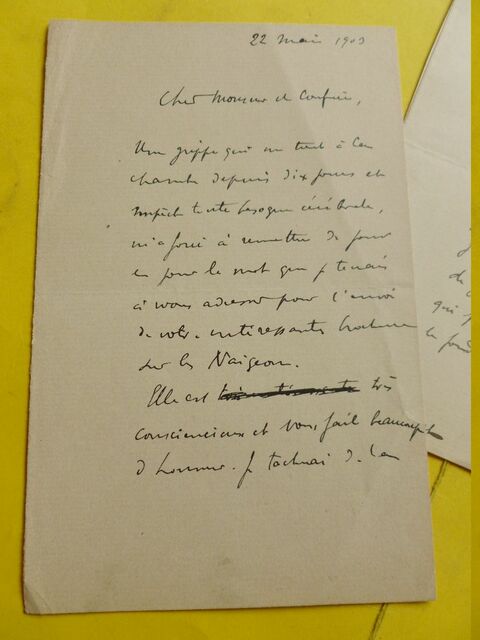 22 mai 1903
Cher Monsieur et Confrère,
Une grippe qui me tient à la
chambre depuis dix jours et
empêche toute besogne cérébrale,
m'a forcé à remettre de jour
en jour le mot que je tenais
à vous adresser pour l'envoi
de votre intéressante brochure
sur les Naigeon.
Elle est très
consciencieuse et vous fait beaucoup
d'honneur. Je tacherai de la
qui